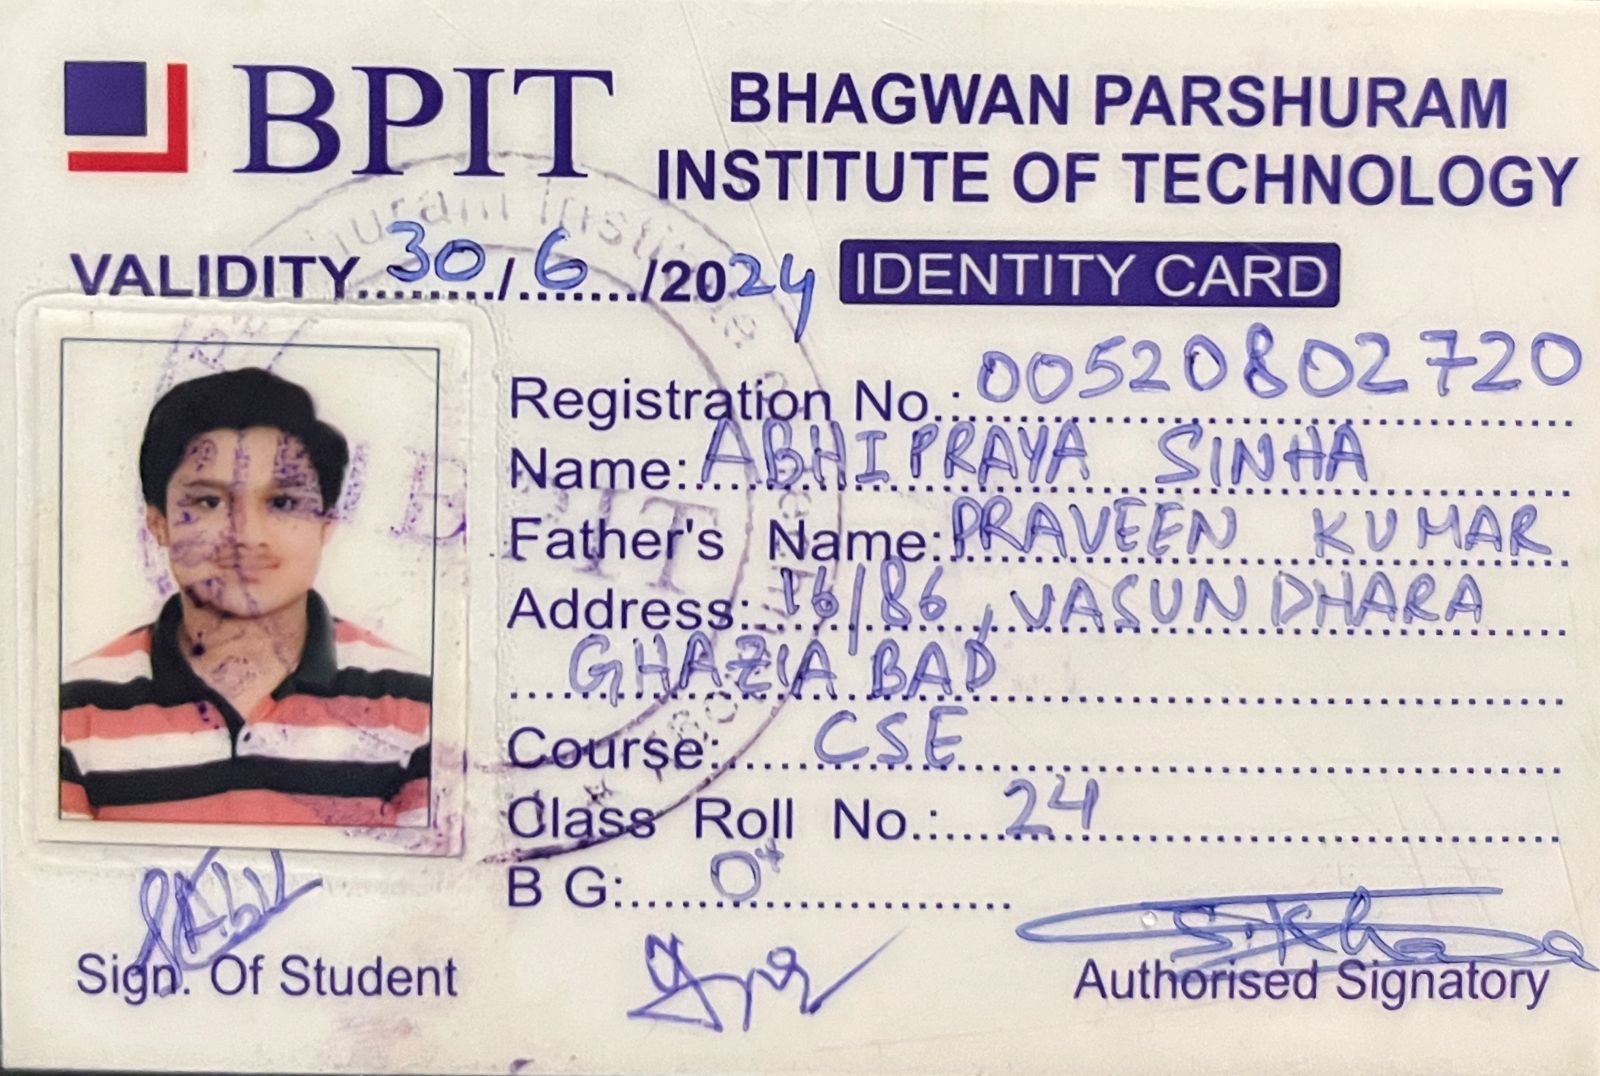 BPIT
BHAGWAN PARSHURAM
INSTITUTE OF TECHNOLOGY
VALIDITY 30/6/2024
IDENTITY CARD
Registration No.: 00520802720
Name: ABHIPRAYA SINHA
Father's Name: PRAVEEN KUMAR
Address: 16/86, VASUNDHARA
GHAZIABAD
Course: CSE
Class Roll No.: 24
B G: O+
Sign. Of Student
Authorised Signatory